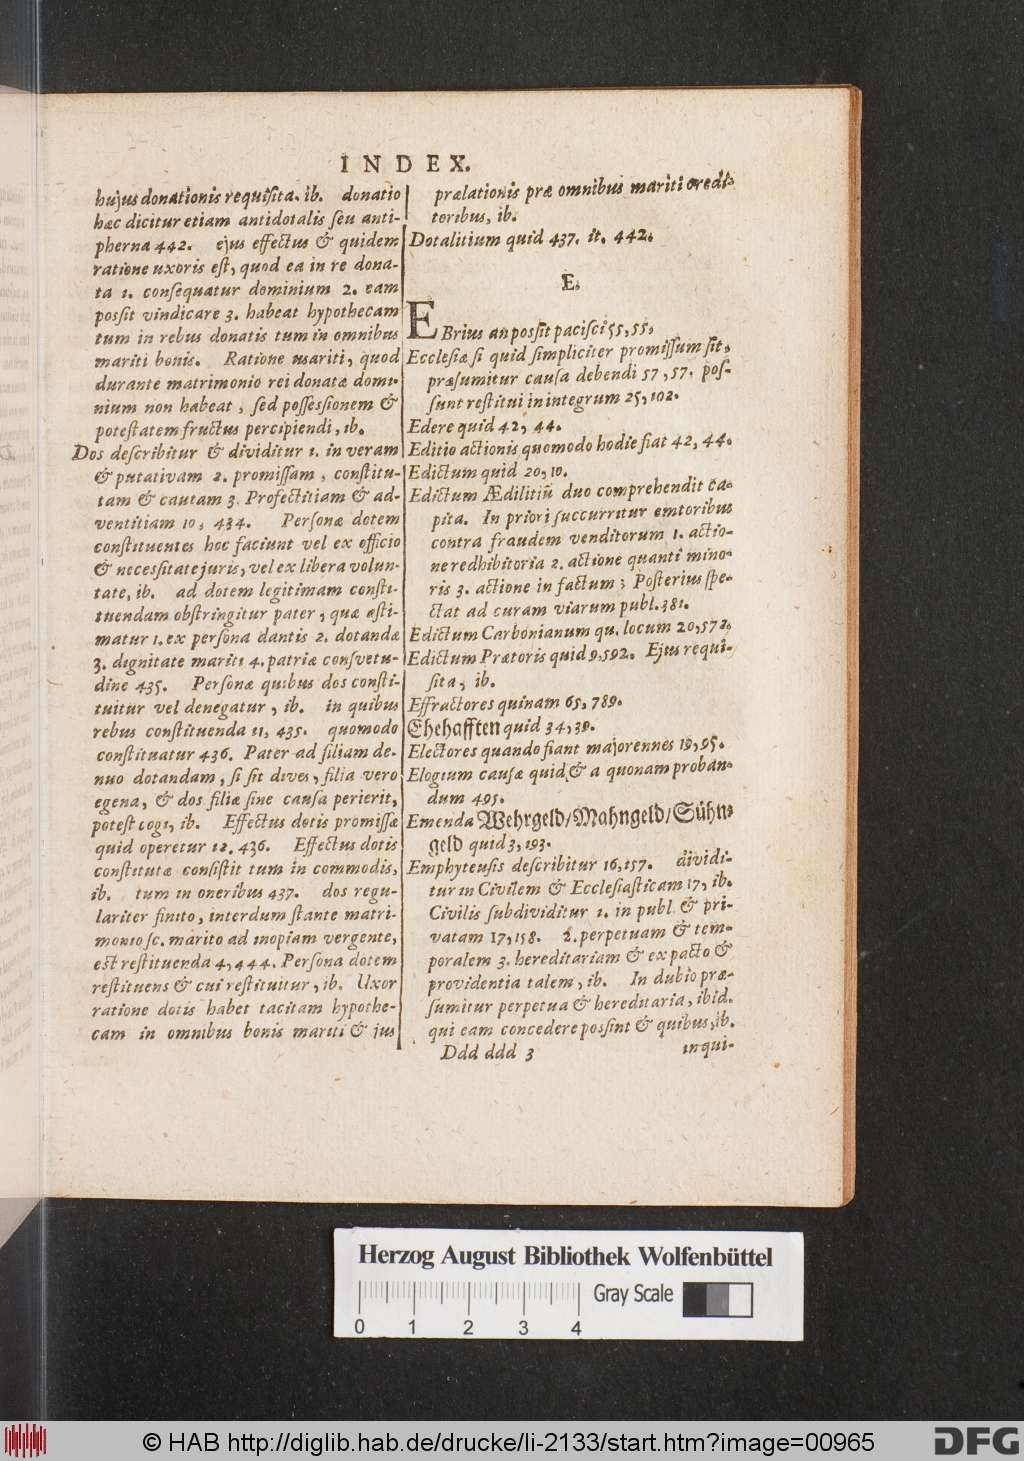 INDEX.
hujus donationis requiſita. ib. donatio
hæc dicitur etiam antidotalis ſeu anti-
pherna 442. ejus effectus & quidem
ratione uxoris eſt, quod ea in re dona-
ta 1. conſequatur dominium 2. eam
poſſit vindicare 3. habeat hypothecam
tum in rebus donatis tum in omnibus
mariti bonis. Ratione mariti, quod
durante matrimonio rei donatæ domi-
nium non habeat, ſed poſſeſſionem &
poteſtatem fructus percipiendi, ib.
Dos deſcribitur & dividitur 1. in veram
& putativam 2. promiſſam, conſtitu-
tam & cautam 3. Profectitiam & ad-
ventitiam 10, 434. Perſonæ dotem
conſtituentes hoc faciunt vel ex officio
& neceſſitate juris, vel ex libera volun-
tate, ib. ad dotem legitimam conſti-
tuendam obſtringitur pater, quæ æſti-
matur 1. ex perſona dantis 2. dotandæ
3. dignitate mariti 4. patriæ conſvetu-
dine 435. Perſonæ quibus dos conſti-
tuitur vel denegatur, ib. in quibus
rebus conſtituenda 11, 435. quomodo
conſtituatur 436. Pater ad filiam de-
nuo dotandam, ſi ſit dives, filia vero
egena, & dos filiæ ſine cauſa perierit,
poteſt cogi, ib. Effectus dotis promiſſæ
quid operetur 12. 436. Effectus dotis
conſtitutæ conſiſtit tum in commodis,
ib. tum in oneribus 437. dos regu-
lariter finito, interdum ſtante matri-
monio ſc. marito ad inopiam vergente,
eſt reſtituenda 4, 444. Perſona dotem
reſtituens & cui reſtituitur, ib. Uxor
ratione dotis habet tacitam hypothe-
cam in omnibus bonis mariti & jus
prælationis præ omnibus mariti credi-
toribus, ib.
Dotalitium quid 437. it. 442.
E.
EBrius an poſſit paciſci 55, 55.
Eccleſiæ ſi quid ſimpliciter promiſſum ſit,
præſumitur cauſa debendi 57, 57. poſ-
ſunt reſtitui in integrum 25, 102.
Edere quid 42, 44.
Editio actionis quomodo hodie fiat 42, 44.
Edictum quid 20, 10.
Edictum Ædilitiū duo comprehendit ca-
pita. In priori ſuccurritur emtoribus
contra fraudem venditorum 1. actio-
ne redhibitoria 2. actione quanti mino-
ris 3. actione in factum; Poſterius ſpe-
ctat ad curam viarum publ. 381.
Edictum Carbonianum qu. locum 20, 572.
Edictum Prætoris quid 9, 592. Ejus requi-
ſita, ib.
Effractores quinam 65, 789.
Ehehafften quid 34, 39.
Electores quando fiant majorennes 19, 95.
Elogium cauſæ quid & a quonam proban-
dum 495.
Emenda Wehrgeld/Mahngeld/Sühn-
geld quid 3, 193.
Emphyteuſis deſcribitur 16, 157. dividi-
tur in Civilem & Eccleſiaſticam 17, ib.
Civilis ſubdividitur 1. in publ & pri-
vatam 17, 158. 2. perpetuam & tem-
poralem 3. hereditariam & ex pacto &
providentia talem, ib. In dubio præ-
ſumitur perpetua & hereditaria, ibid.
qui eam concedere poſſint & quibus, ib.
Ddd ddd 3 inqui-
Herzog August Bibliothek Wolfenbüttel
Gray Scale
0 1 2 3 4
© HAB http://diglib.hab.de/drucke/li-2133/start.htm?image=00965
DFG